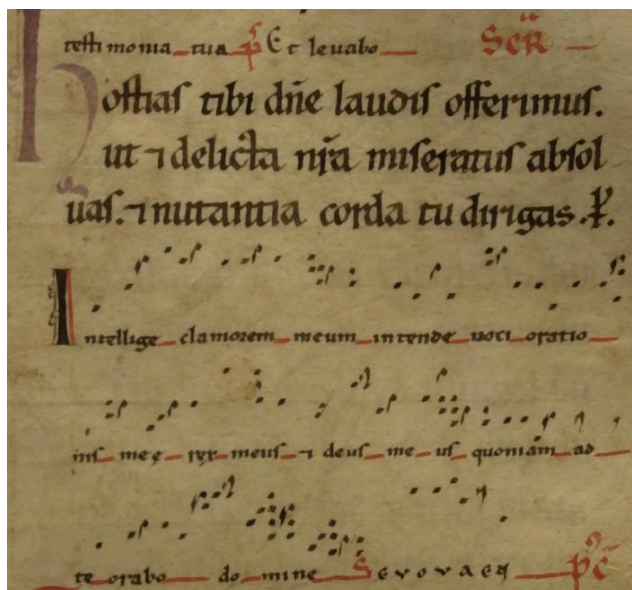 testimonia tua P̃ Et levabo Scr̃
Hostias tibi dñe laudis offerimus.
ut ⁊ delicta nr̃a miseratus absol
vas. ⁊ nutantia corda tu dirigas.
Intellige clamorem meum intende voci oratio
nis meę rex meus ⁊ deus meus quoniam ad
te orabo domine Sevovaen pc̃